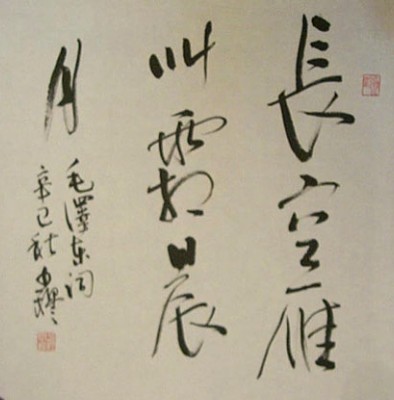 長空雁
叫霜晨
月
毛澤东词
辛巳秋